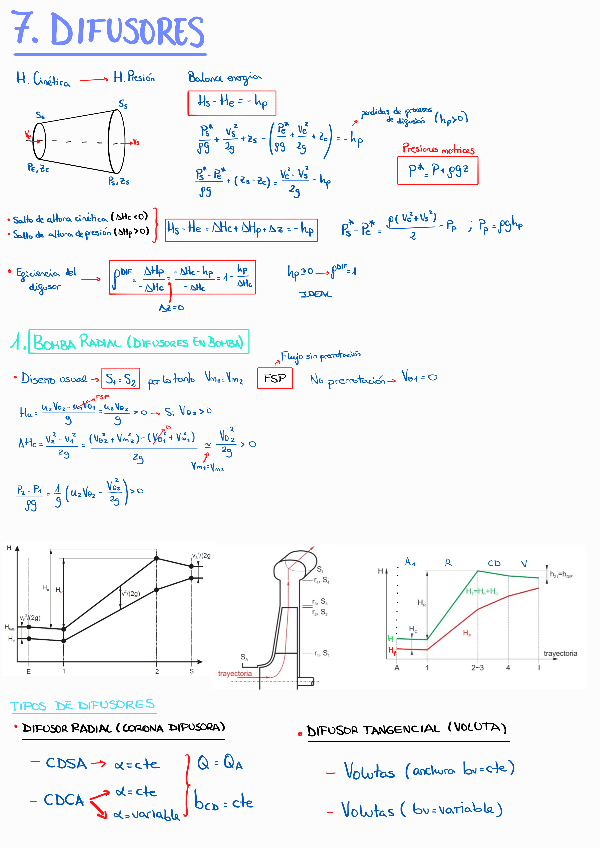 7. DIFUSORES
H. Cinética → H. Presión
Balance energía
Hs - He = - hp
Se
Ss
Ve
Vs
Pe, Ze
Ps, Zs
Ps*/ρg + Vs²/2g + Zs - (Pe*/ρg + Ve²/2g + Ze) = - hp
perdidas de proceso de difusión (hp>0)
Presiones motrices
P* = P + ρgz
Ps* - Pe*/ρg + (Zs - Ze) = Ve² - Vs²/2g - hp
• Salto de altura cinética (ΔHc<0)
• Salto de altura de presión (ΔHp>0)
Hs - He = ΔHc + ΔHp + Δz = - hp
Ps* - Pe* = ρ(Ve² + Vs²)/2 - Pp ; Pp = ρghp
• Eficiencia del difusor
ρ^DIF = ΔHp/-ΔHc = -ΔHc - hp/-ΔHc = 1 - hp/ΔHc
Δz=0
hp≥0 → ρ^DIF = 1
IDEAL
1. BOMBA RADIAL (DIFUSORES EN BOMBA)
Flujo sin prerrotación
• Diseño usual → S1 = S2 por lo tanto Vm1 = Vm2 FSP No prerrotación → Vθ1 = 0
Hu = u2Vθ2 - u1Vθ1/g = u2Vθ2/g > 0 → Si Vθ2 > 0
FSP
ΔHc = V2² - V1²/2g = (Vθ2² + Vm2²) - (Vθ1² + Vm1²)/2g ≃ Vθ2²/2g > 0
Vm1=Vm2
P2 - P1/ρg = 1/g (u2Vθ2 - Vθ2²/2g) > 0
H
v²/(2g)
E 1 2 S
trayectoria
A1 R CD V
H
trayectoria
A 1 2-3 4 I
TIPOS DE DIFUSORES
• DIFUSOR RADIAL (CORONA DIFUSORA)
- CDSA → α=cte
- CDCA → α=cte
α=variable
Q = QA
bCD = cte
• DIFUSOR TANGENCIAL (VOLUTA)
- Volutas (anchura bv=cte)
- Volutas (bv=variable)